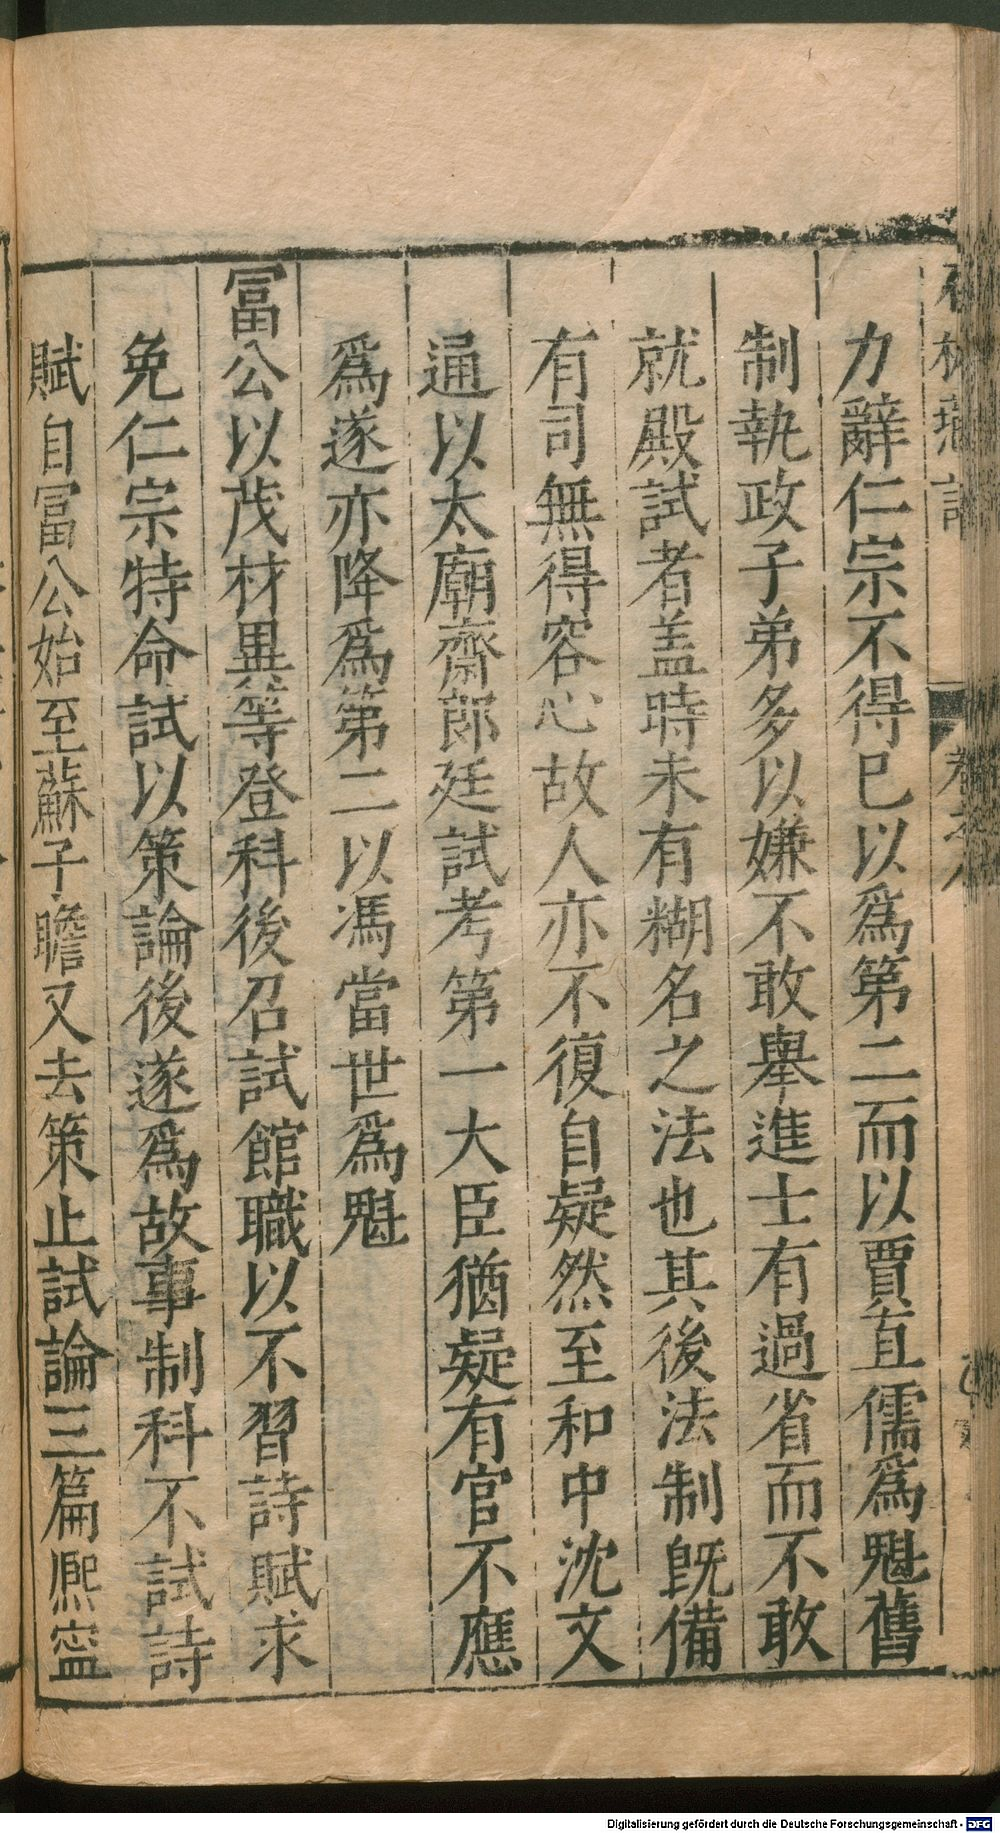 力辭仁宗不得巳以爲第二而以賈直儒爲魁舊
制執政子弟多以嫌不敢舉進士有過省而不敢
就殿試者盖時未有糊名之法也其後法制既備
有司無得容心故人亦不復自疑然至和中沈文
通以太廟齋郎廷試考第一大臣猶疑有官不應
爲遂亦降爲第二以馮當世爲魁
冨公以茂材異等登科後召試館職以不習詩賦求
免仁宗特命試以策論後遂爲故事制科不試詩
賦自冨公始至蘇子瞻又去策止試論三篇熈寍
Digitalisierung gefördert durch die Deutsche Forschungsgemeinschaft - DFG